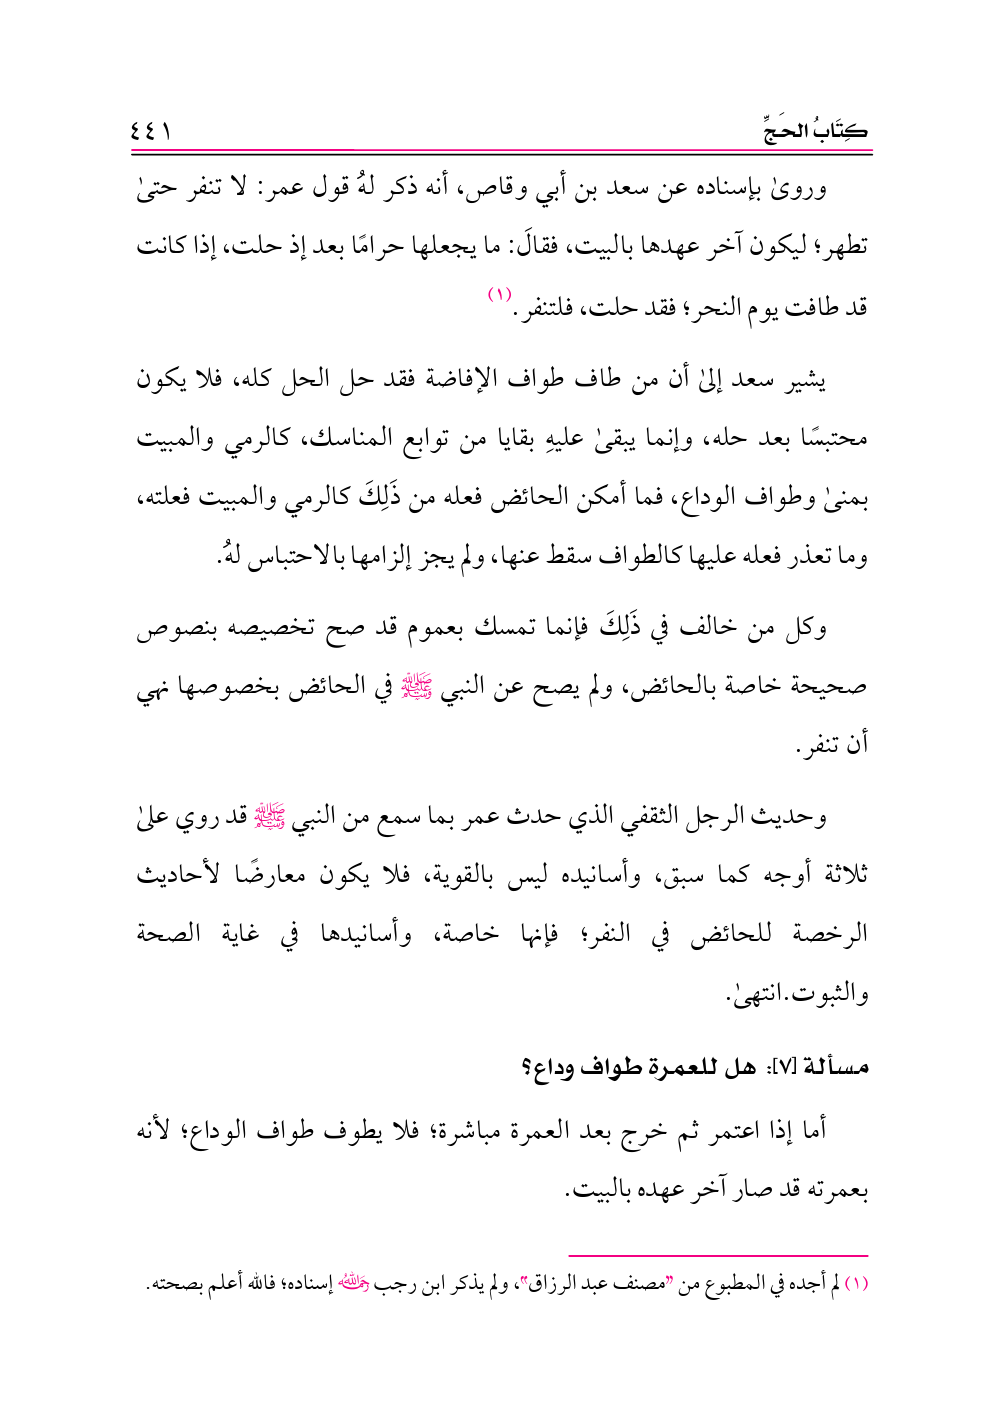 كِتَابُ الحَجِّ ٤٤١
وروىٰ بإسناده عن سعد بن أبي وقاص، أنه ذكر لهُ قول عمر: لا تنفر حتىٰ
تطهر؛ ليكون آخر عهدها بالبيت، فقالَ: ما يجعلها حرامًا بعد إذ حلت، إذا كانت
قد طافت يوم النحر؛ فقد حلت، فلتنفر.(١)
يشير سعد إلىٰ أن من طاف طواف الإفاضة فقد حل الحل كله، فلا يكون
محتبسًا بعد حله، وإنما يبقىٰ عليهِ بقايا من توابع المناسك، كالرمي والمبيت
بمنىٰ وطواف الوداع، فما أمكن الحائض فعله من ذَلِكَ كالرمي والمبيت فعلته،
وما تعذر فعله عليها كالطواف سقط عنها، ولم يجز إلزامها بالاحتباس لهُ.
وكل من خالف في ذَلِكَ فإنما تمسك بعموم قد صح تخصيصه بنصوص
صحيحة خاصة بالحائض، ولم يصح عن النبي ﷺ في الحائض بخصوصها نهي
أن تنفر.
وحديث الرجل الثقفي الذي حدث عمر بما سمع من النبي ﷺ قد روي علىٰ
ثلاثة أوجه كما سبق، وأسانيده ليس بالقوية، فلا يكون معارضًا لأحاديث
الرخصة للحائض في النفر؛ فإنها خاصة، وأسانيدها في غاية الصحة
والثبوت.انتهىٰ.
مسألة [٧]: هل للعمرة طواف وداع؟
أما إذا اعتمر ثم خرج بعد العمرة مباشرة؛ فلا يطوف طواف الوداع؛ لأنه
بعمرته قد صار آخر عهده بالبيت.
(١) لم أجده في المطبوع من "مصنف عبد الرزاق"، ولم يذكر ابن رجب رحمه الله إسناده؛ فالله أعلم بصحته.